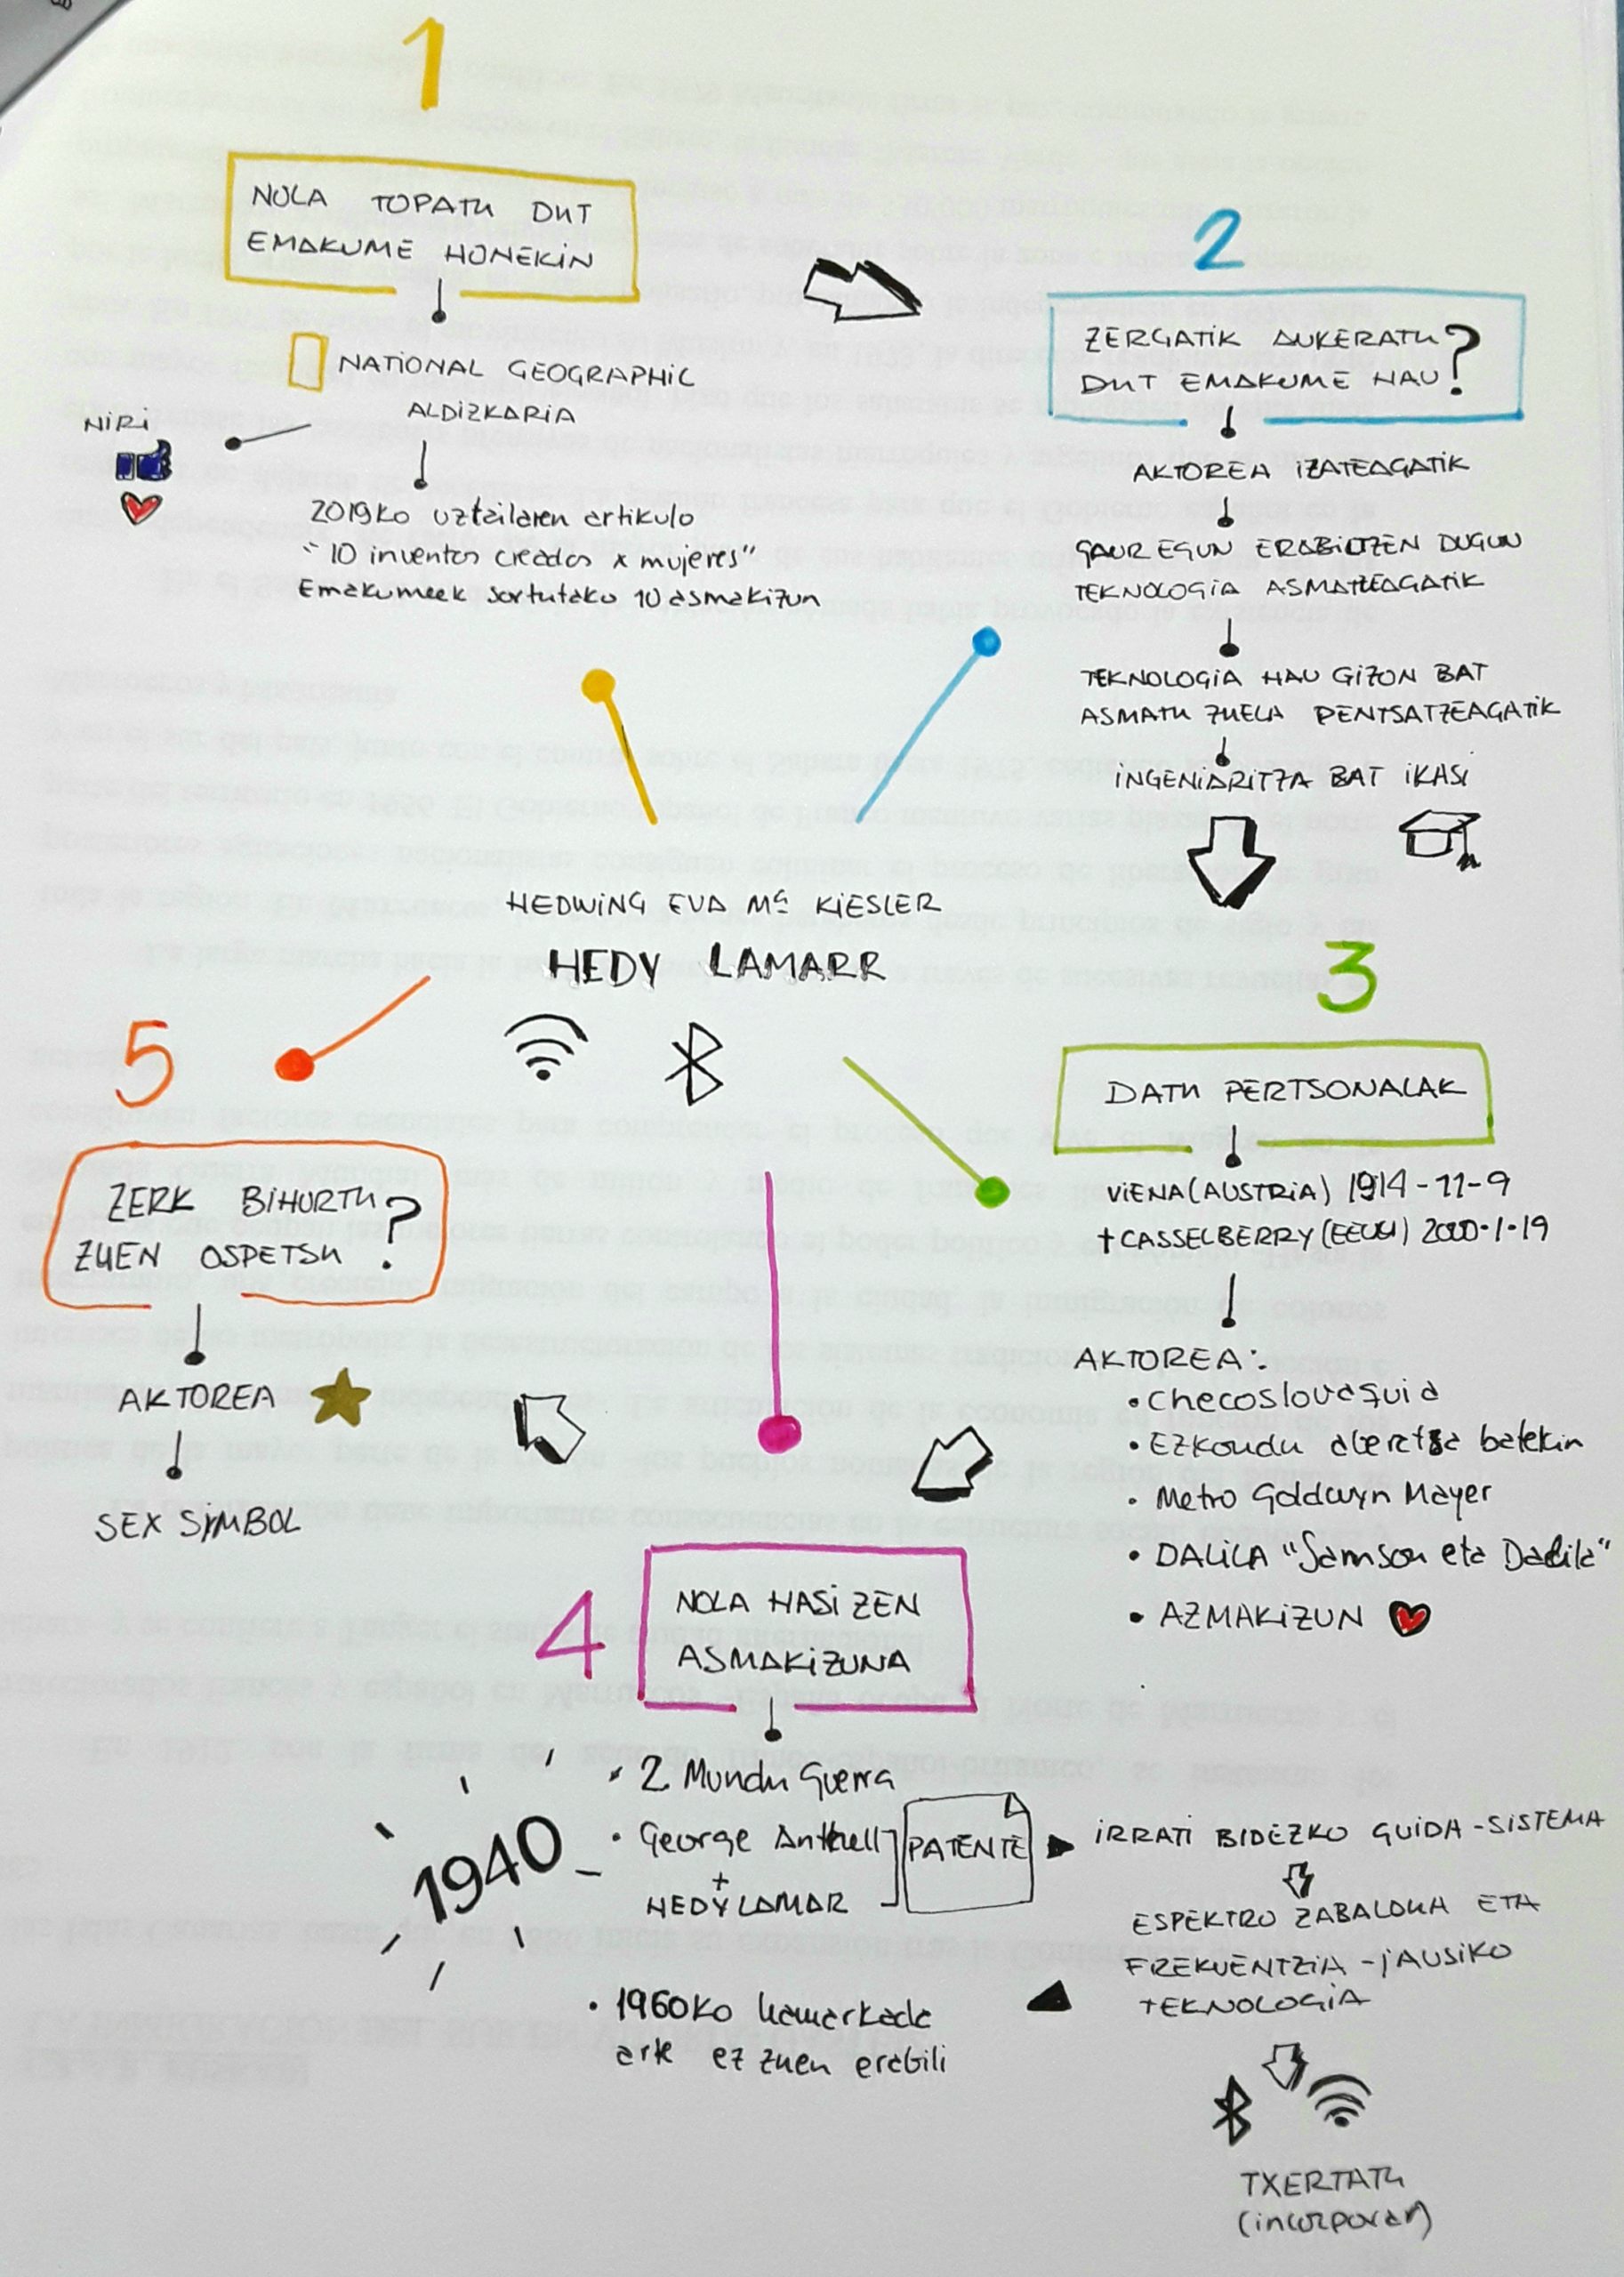 1
NOLA TOPATU DUT
EMAKUME HONEKIN
NATIONAL GEOGRAPHIC
ALDIZKARIA
NIRI
2019ko uztailaren artikulo
"10 inventos creados x mujeres"
Emakumeek sortutako 10 asmakizun
2
ZERGATIK AUKERATU
DUT EMAKUME HAU?
AKTOREA IZATEAGATIK
GAUR EGUN ERABILTZEN DUGUN
TEKNOLOGIA ASMATZEAGATIK
TEKNOLOGIA HAU GIZON BAT
ASMATU ZUELA PENTSATZEAGATIK
INGENIARITZA BAT IKASI
HEDWING EVA Mª KIESLER
HEDY LAMARR
3
DATU PERTSONALAK
VIENA (AUSTRIA) 1914-11-9
†CASSELBERRY (EEUU) 2000-1-19
AKTOREA:
• Checoslovaquia
• Ezkondu aberatsa batekin
• Metro Goldwyn Mayer
• DALILA "Samson eta Dalila"
• AZMAKIZUN
4
NOLA HASI ZEN
ASMAKIZUNA
1940
• 2. Mundu Guerra
• George Antheil
+
HEDY LAMAR
PATENTE
IRRATI BIDEZKO GUIDA-SISTEMA
ESPEKTRO ZABALDUA ETA
FREKUENTZIA-JAUSIKO
TEKNOLOGIA
• 1960ko hamarkada
arte ez zuen erabili
TXERTATU
(incorporar)
5
ZERK BIHURTU
ZUEN OSPETSU?
AKTOREA
SEX SIMBOL